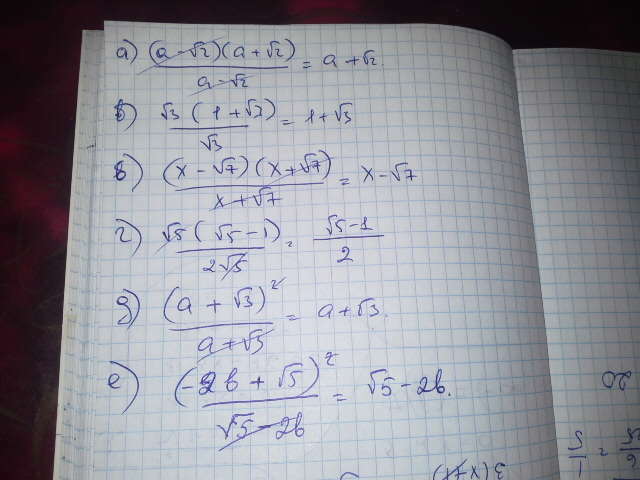 а) (a-√2)(a+√2) / a-√2 = a+√2.
б) √3 (1+√3) / √3 = 1+√3
в) (x-√7)(x+√7) / x+√7 = x-√7
г) √5(√5-1) / 2√5 = √5-1 / 2
д) (a+√3)² / a+√3 = a+√3.
е) (-2b+√5)² / √5-2b = √5-2b.